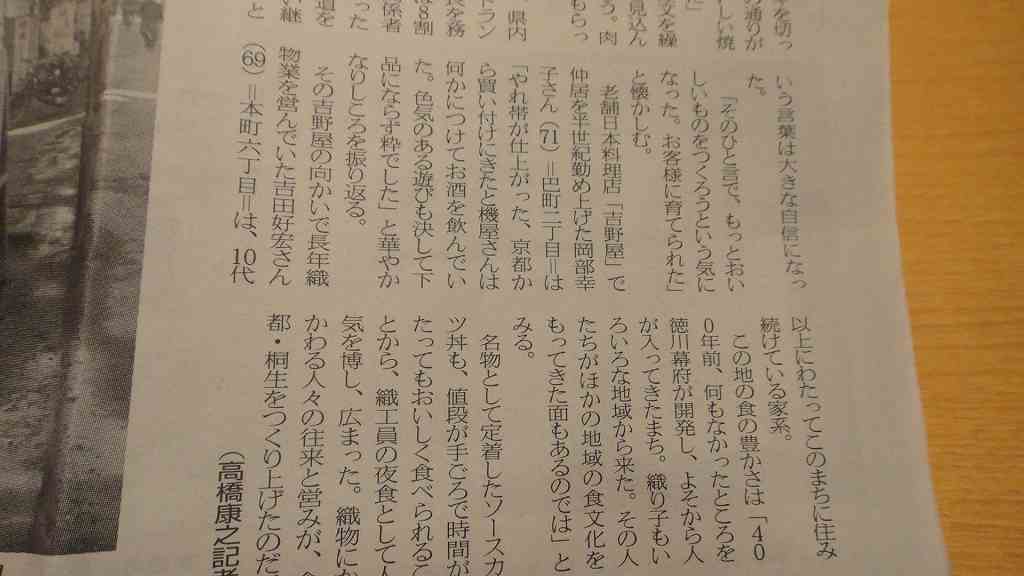 を切っ
の通りが
しい焼
」
を繰
見込ん
ろ。肉
もらっ
県内
トラン
長を務
は8割
係者
った
道を
い継
と
いう言葉は大きな自信になっ
た。
「そのひと言で、もっとおい
しいものをつくろうという気に
なった。お客様に育てられた」
と懐かしむ。
老舗日本料理店「吉野屋」で
仲居を半世紀勤め上げた岡部幸
子さん（71）＝巴町二丁目＝は
「やれ帯が仕上がった、京都か
ら買い付けにきたと機屋さんは
何かにつけてお酒を飲んでい
た。色気のある遊びも決して下
品にならず粋でした」と華やか
なりしころを振り返る。
その吉野屋の向かいで長年織
物業を営んでいた吉田好宏さん
（69）＝本町六丁目＝は、10代
以上にわたってこのまちに住み
続けている家系。
この地の食の豊かさは「40
0年前、何もなかったところを
徳川幕府が開発し、よそから人
が入ってきたまち。織り子もい
ろいろな地域から来た。その人
たちがほかの地域の食文化を
もってきた面もあるのでは」と
みる。
名物として定着したソースカ
ツ丼も、値段が手ごろで時間が
たってもおいしく食べられるこ
とから、織工員の夜食として人
気を博し、広まった。織物にか
かわる人々の往来と営みが、
都・桐生をつくり上げたのだ
（高橋康之記者